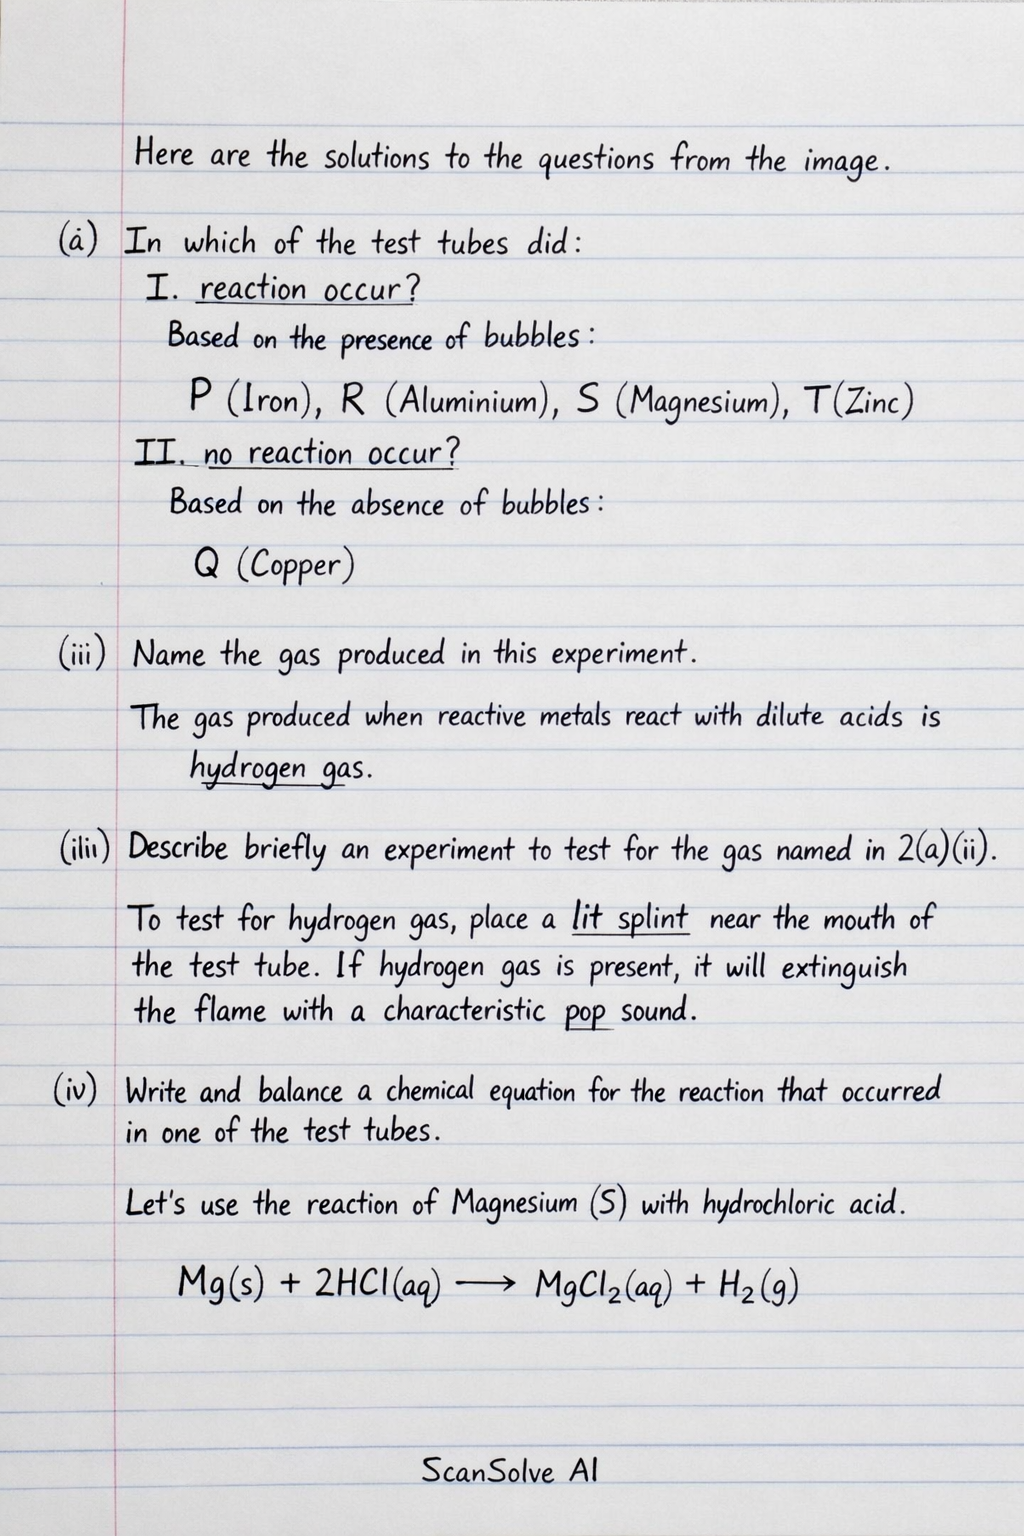 Here are the solutions to the questions from the image.
(ȧ) In which of the test tubes did:
I. reaction occur?
Based on the presence of bubbles:
P (Iron), R (Aluminium), S (Magnesium), T(Zinc)
II. no reaction occur?
Based on the absence of bubbles:
Q (Copper)
(iii) Name the gas produced in this experiment.
The gas produced when reactive metals react with dilute acids is
hydrogen gas.
(ilii) Describe briefly an experiment to test for the gas named in 2(a)(ii).
To test for hydrogen gas, place a lit splint near the mouth of
the test tube. If hydrogen gas is present, it will extinguish
the flame with a characteristic pop sound.
(iv) Write and balance a chemical equation for the reaction that occurred
in one of the test tubes.
Let's use the reaction of Magnesium (S) with hydrochloric acid.
Mg(s) + 2HCl(aq) ⟶ MgCl₂(aq) + H₂(g)
ScanSolve AI